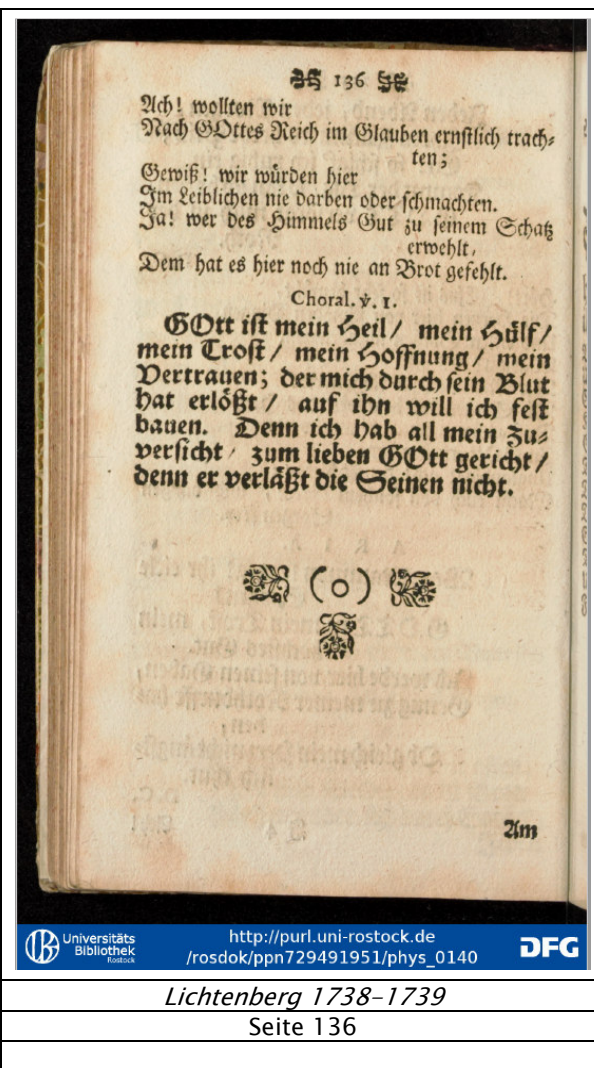 136
Ach! wollten wir
Nach GOttes Reich im Glauben ernstlich trach-
ten;
Gewiß! wir würden hier
Im Leiblichen nie darben oder schmachten.
Ja! wer des Himmels Gut zu seinem Schatz
erwehlt,
Dem hat es hier noch nie an Brot gefehlt.
Choral. v. 1.
GOtt ist mein Heil/ mein Hülf/
mein Trost/ mein Hoffnung/ mein
Vertrauen; der mich durch sein Blut
hat erlößt/ auf ihn will ich fest
bauen. Denn ich hab all mein Zu-
versicht/ zum lieben GOtt gericht/
denn er verläßt die Seinen nicht.
(o)
Am
Universitäts
Bibliothek
Rostock
http://purl.uni-rostock.de
/rosdok/ppn729491951/phys_0140
DFG
Lichtenberg 1738-1739
Seite 136